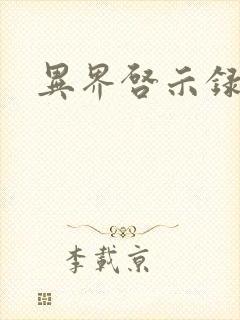 異界啓示錄
李載京